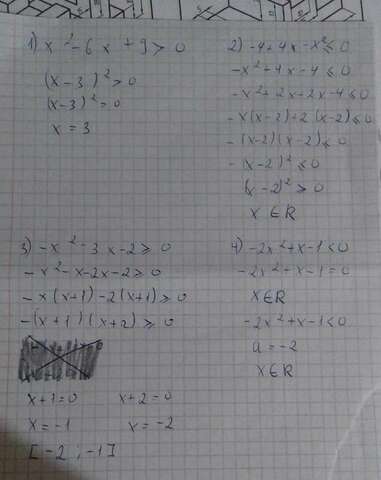 1) x² - 6x + 9 > 0
(x - 3)² > 0
(x - 3)² = 0
x = 3
2) -4 + 4x - x² ≤ 0
-x² + 4x - 4 ≤ 0
-x² + 2x + 2x - 4 ≤ 0
-x(x - 2) + 2(x - 2) ≤ 0
-(x - 2)(x - 2) ≤ 0
-(x - 2)² ≤ 0
(x - 2)² ≥ 0
x ∈ R
3) -x² - 3x - 2 ≥ 0
-x² - x - 2x - 2 ≥ 0
-x(x + 1) - 2(x + 1) ≥ 0
-(x + 1)(x + 2) ≥ 0
x + 1 = 0 x + 2 = 0
x = -1 x = -2
[-2 ; -1]
4) -2x² + x - 1 < 0
-2x² + x - 1 = 0
x ∈ R
-2x² + x - 1 < 0
a = -2
x ∈ R